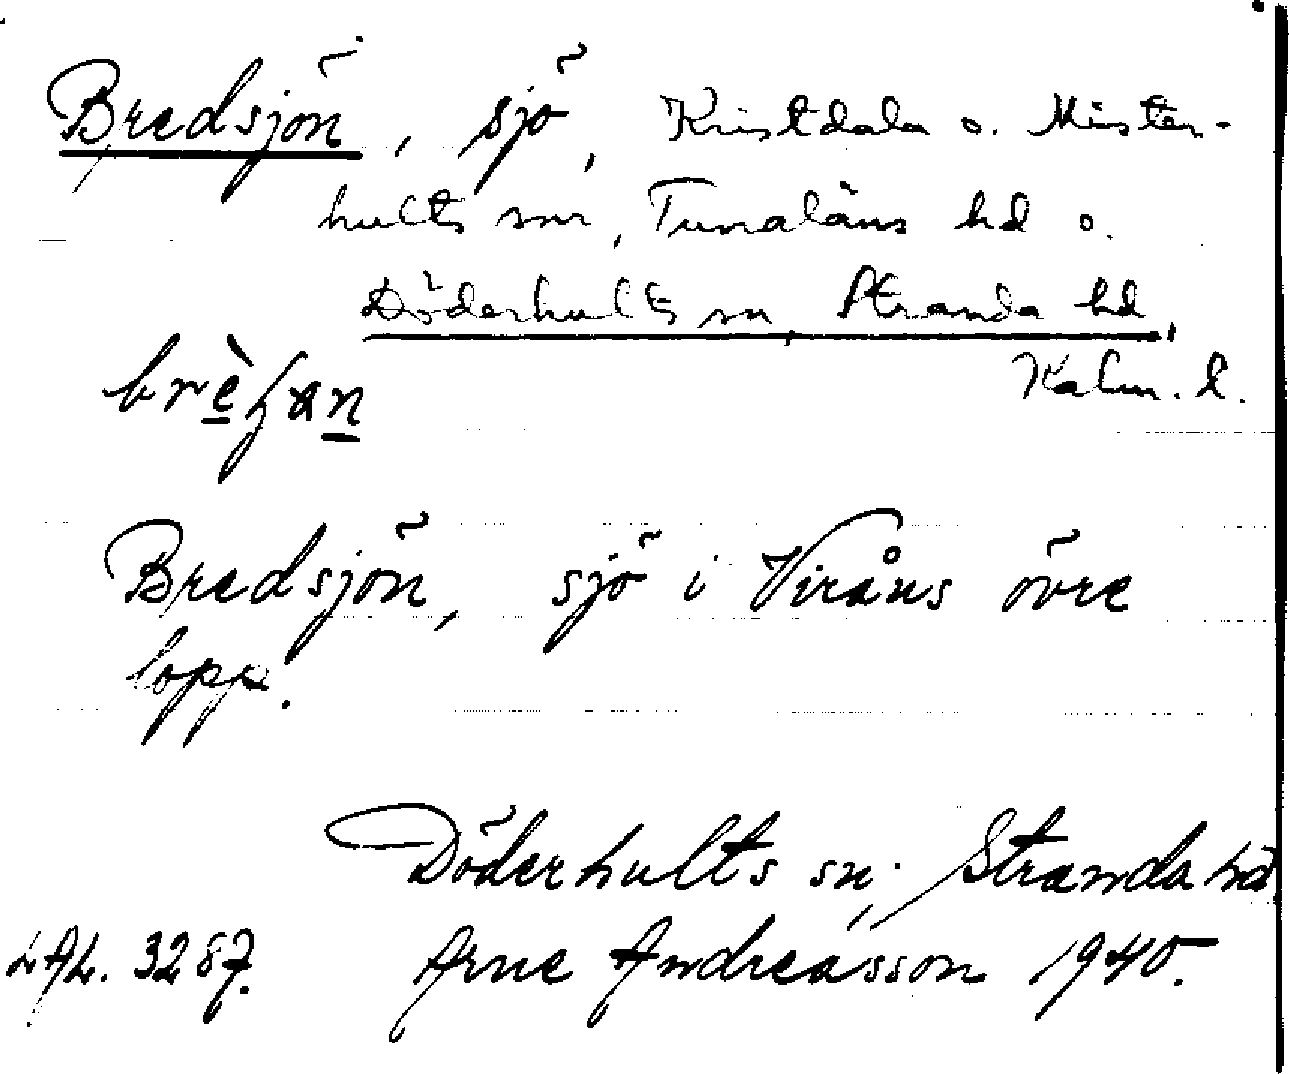 Bredsjön, sjö, Kristdala o. Mister-
hults snr, Tunaläns hd o.
Döderhults sn, Stranda hd,
Kalm. l.
Bredsjön, sjö i Viråns övre
lopp.
Döderhults sn; Stranda hd.
3287. Arne Andreasson 1940.